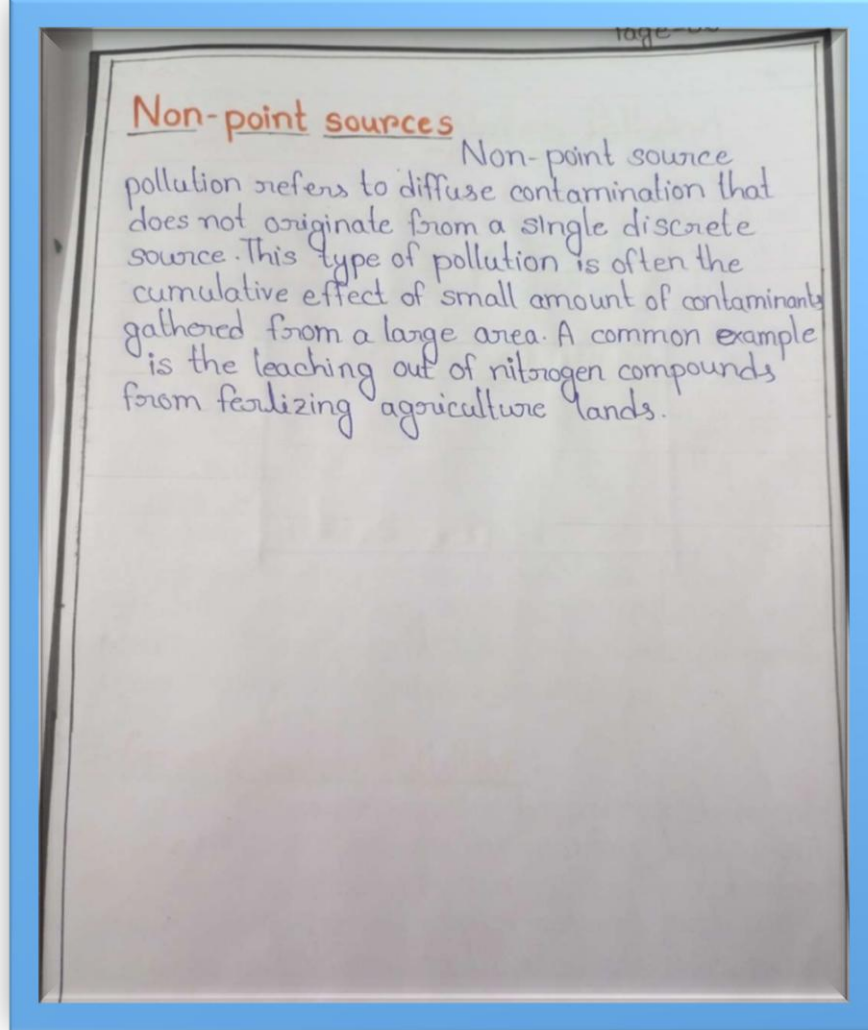 Non-point sources
Non-point source
pollution refers to diffuse contamination that
does not originate from a single discrete
source. This type of pollution is often the
cumulative effect of small amount of contaminants
gathered from a large area. A common example
is the leaching out of nitrogen compounds
from ferlizing agriculture lands.